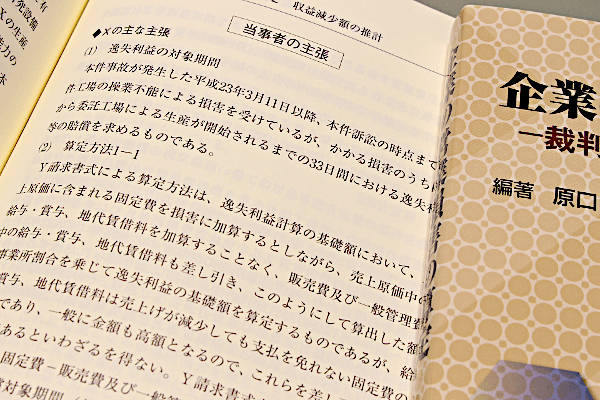 に有
発設備
Xの生産
能力の
本
2 収益減少額の推計
当事者の主張
◆Xの主な主張
(1) 逸失利益の対象期間
本件事故が発生した平成23年3月11日以降、本件訴訟の時点まで
件工場の操業不能による損害を受けているが、かかる損害のうち
から委託工場による生産が開始されるまでの33日間における逸失利
等の賠償を求めるものである。
(2) 算定方法1-1
Y請求書式による算定方法は、逸失利益計算の基礎額において、
上原価に含まれる固定費を損害に加算するとしながら、売上原価中の
給与・賞与、地代賃借料を加算することなく、販売費及び一般管理費
中の給与・賞与、地代賃借料も差し引き、このようにして算出した額
事業所割合を乗じて逸失利益の基礎額を算定するものであるが、給
賞与、地代賃借料は売上げが減少しても支払を免れない固定費の
であり、一般に金額も高額となるので、これらを差し
あるといわざるを得ない。Y請求書式
固定費－販売費及び一般
対象期間
企業
―裁判
編著 原口